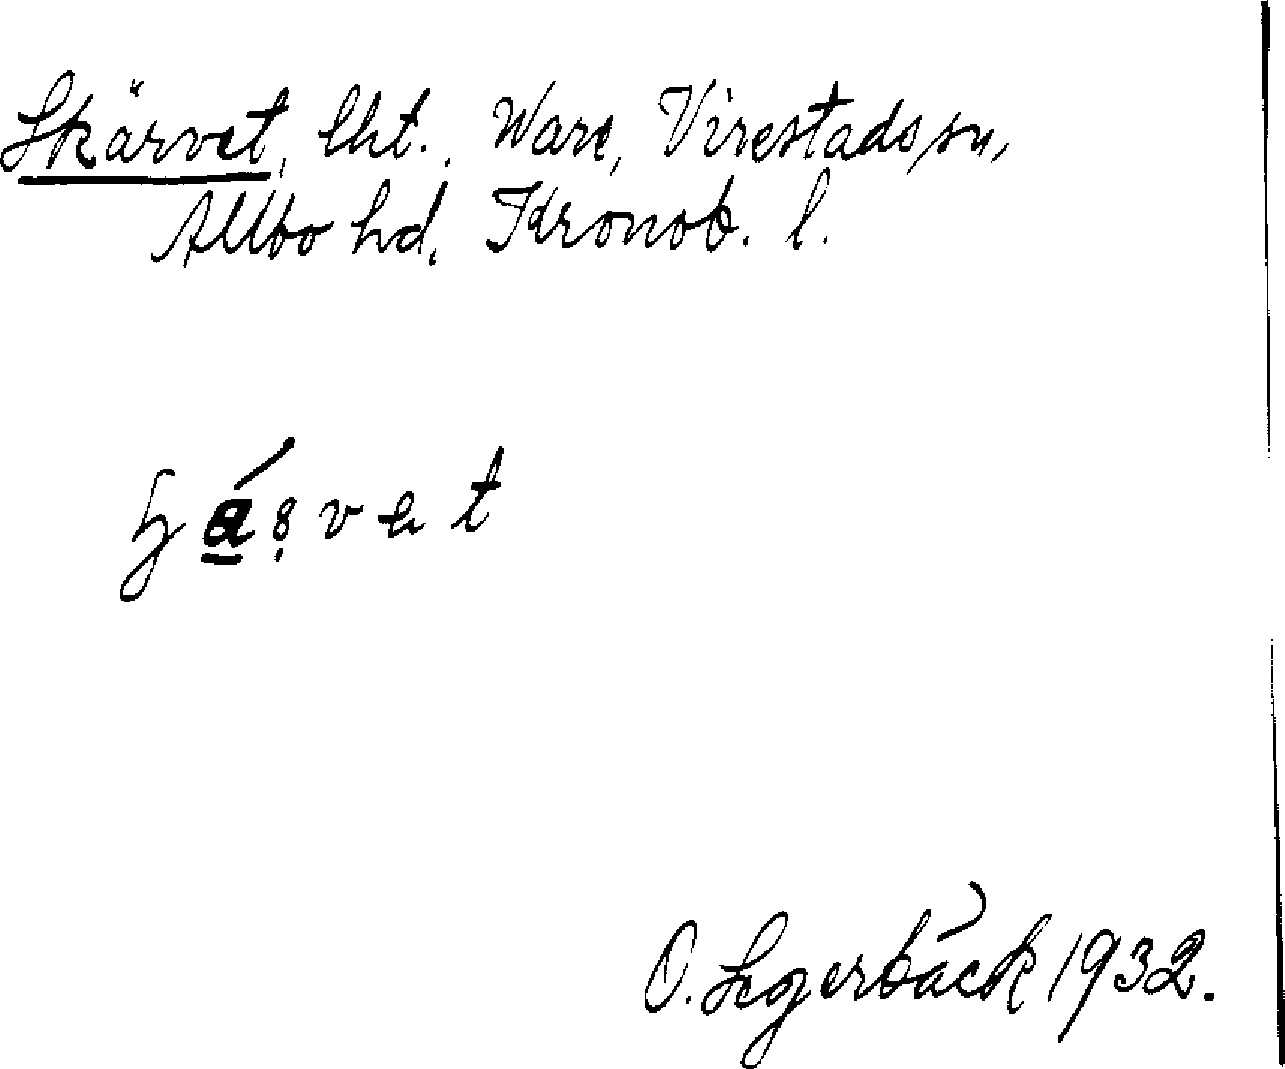 Skärvet, lht., Ware, Virestads sn,
Allbo hd, Kronob. l.
O. Segerbäck 1932.